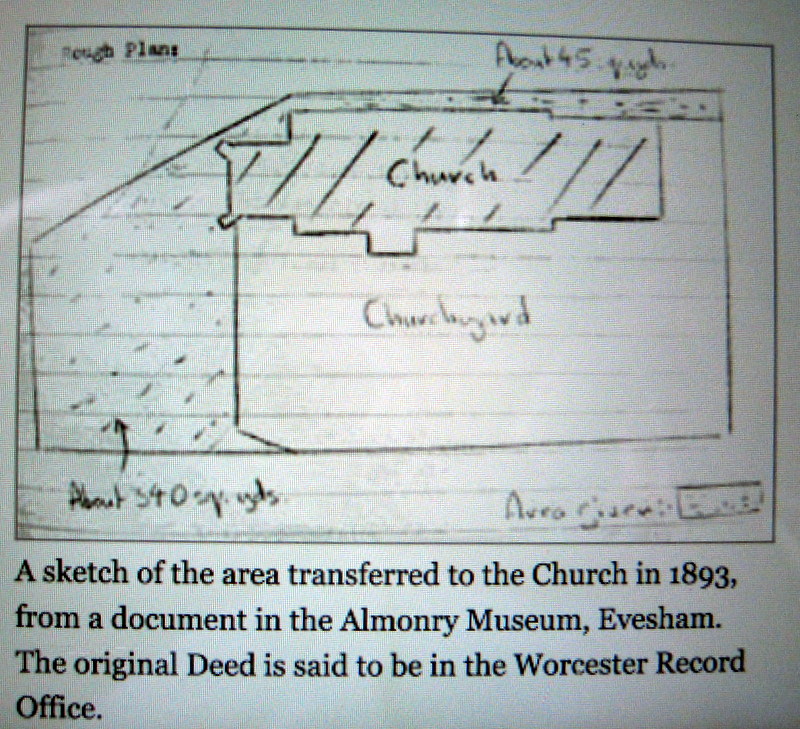 Rough Plan:
About 45 sq. yds.
Church
Churchyard
About 340 sq. yds.
Area given:
A sketch of the area transferred to the Church in 1893,
from a document in the Almonry Museum, Evesham.
The original Deed is said to be in the Worcester Record
Office.